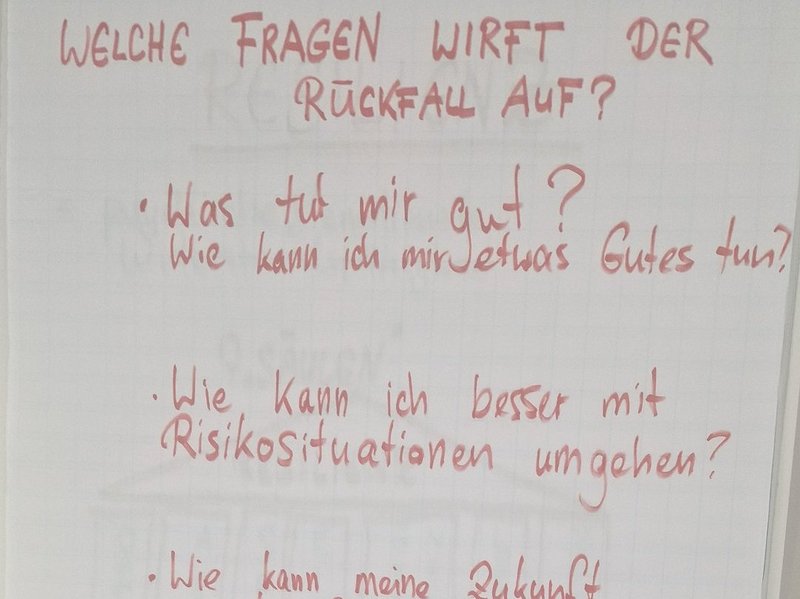 WELCHE FRAGEN WIRFT DER
RÜCKFALL AUF?
• Was tut mir gut?
Wie kann ich mir etwas Gutes tun?
• Wie kann ich besser mit
Risikosituationen umgehen?
• Wie kann meine Zukunft